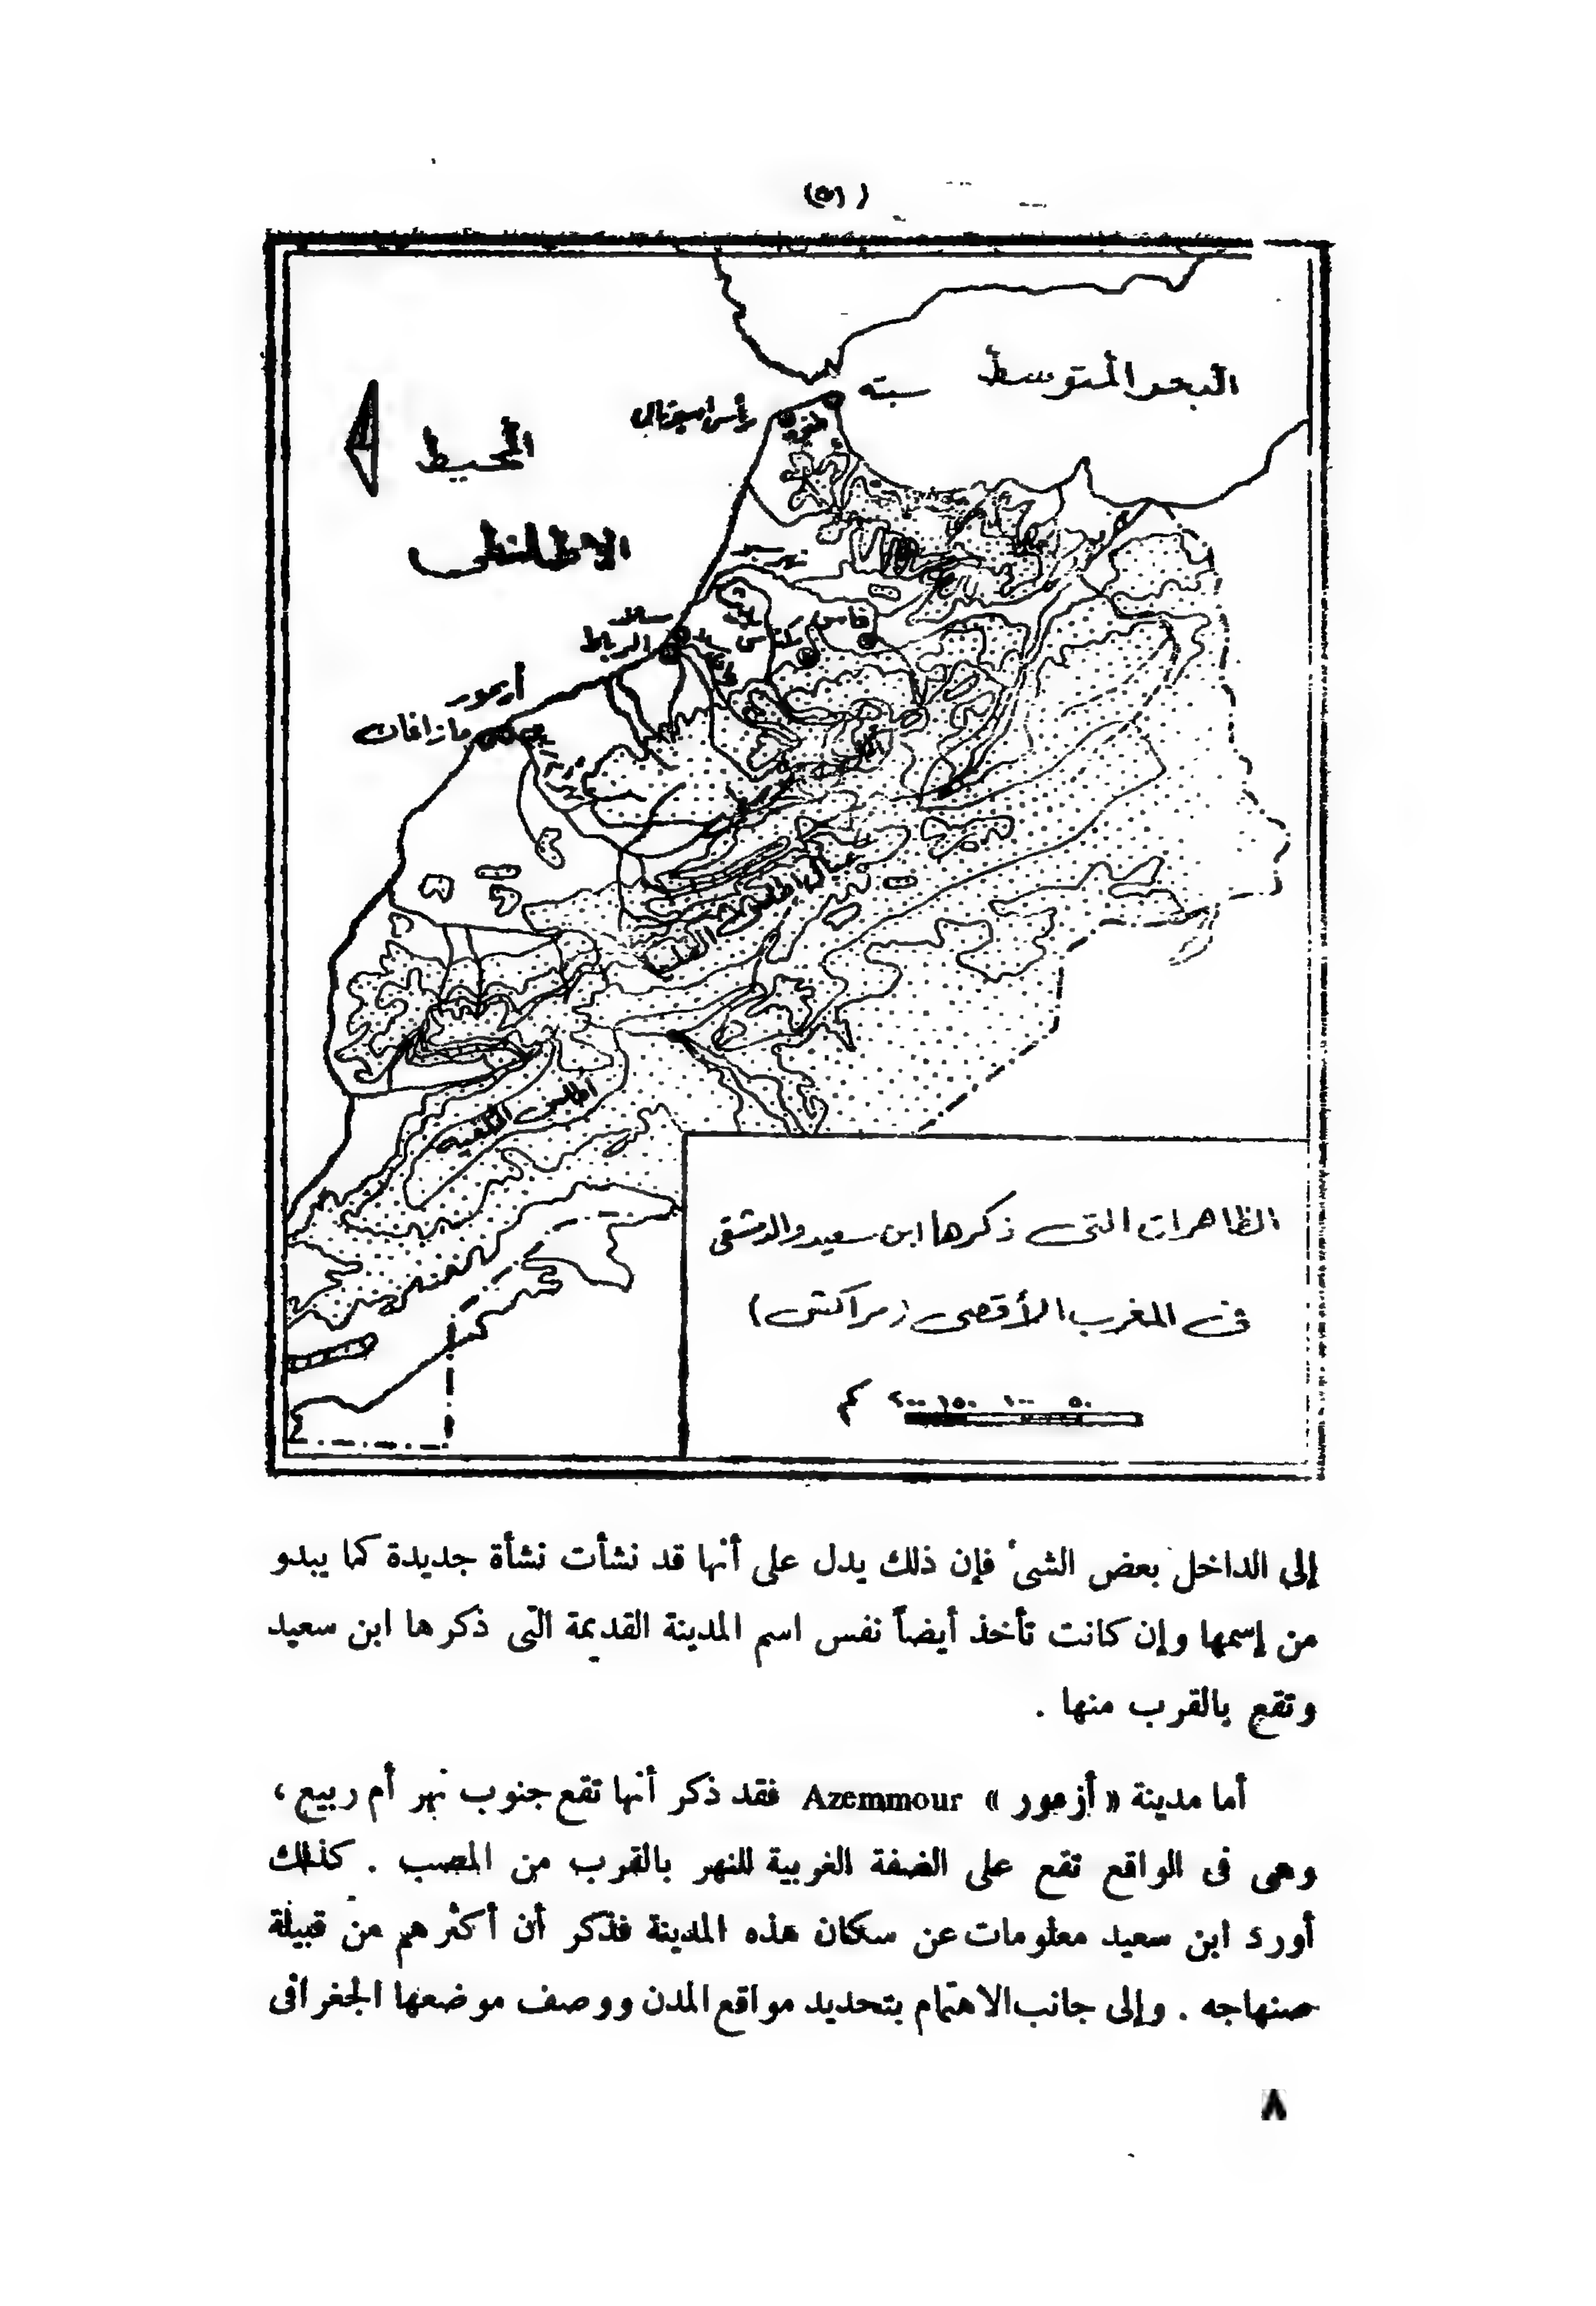 البحر المتوسط
سبته
رأس اسبرتال
المحيط
الاطلنطى
نهر سبو
فاس
مكناس
سلا
الرباط
أزمور
مازاغان
جبال أطلس العليا
اطلس الخلفيه
الظاهرات التى ذكرها ابن سعيد والدمشقى
فى المغرب الأقصى (مراكش)
٥٠ ١٠٠ ١٥٠ ٢٠٠ كم
إلى الداخل بعض الشىء فإن ذلك يدل على أنها قد نشأت نشأة جديدة كما يبدو
من إسمها وإن كانت تأخذ أيضاً نفس اسم المدينة القديمة التى ذكرها ابن سعيد
وتقع بالقرب منها .
أما مدينة « أزمور » Azemmour فقد ذكر أنها تقع جنوب نهر أم ربيع ،
وهى فى الواقع تقع على الضفة الغربية للنهر بالقرب من المصب . كذلك
أورد ابن سعيد معلومات عن سكان هذه المدينة فذكر أن أكثرهم من قبيلة
صنهاجه . وإلى جانب الاهتمام بتحديد مواقع المدن ووصف موضعها الجغرافى
٨